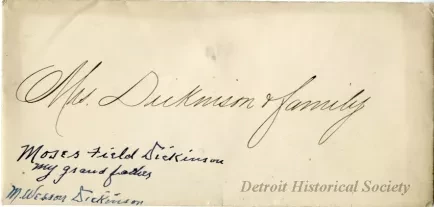 Mrs. Dickinson & family
Moses Field Dickinson
my grand father
M. Wesson Dickinson
Detroit Historical Society